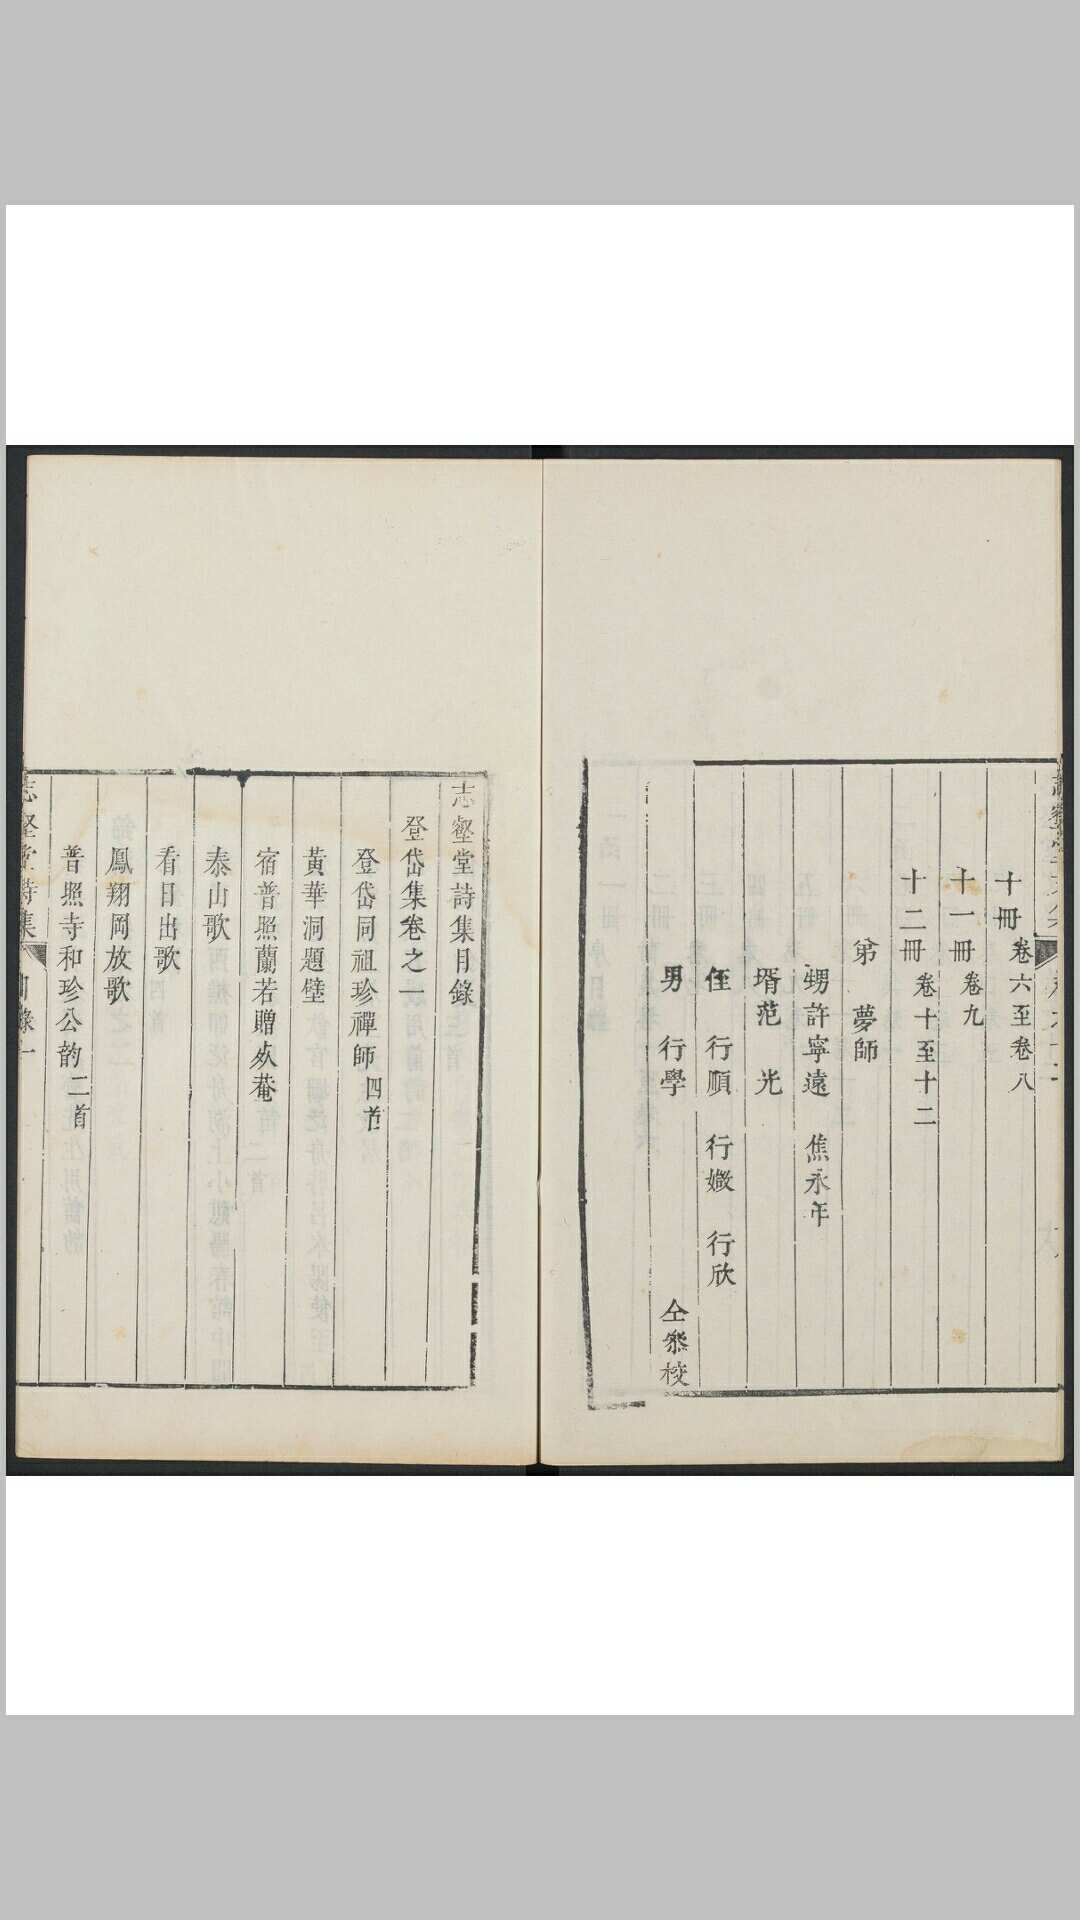 十冊 卷六至卷八
十一冊 卷九
十二冊 卷十至十二
弟 夢師
甥 許寧遠 焦永年
壻 范 光
侄 行順 行嬓 行欣
男 行學 仝叅校
志壑堂詩集目錄
登岱集卷之一
登岱同祖珍禪師四首
黃華洞題壁
宿普照蘭若贈夶菴
泰山歌
看日出歌
鳳翔岡放歌
普照寺和珍公韵二首
志壑堂詩集 目錄 一